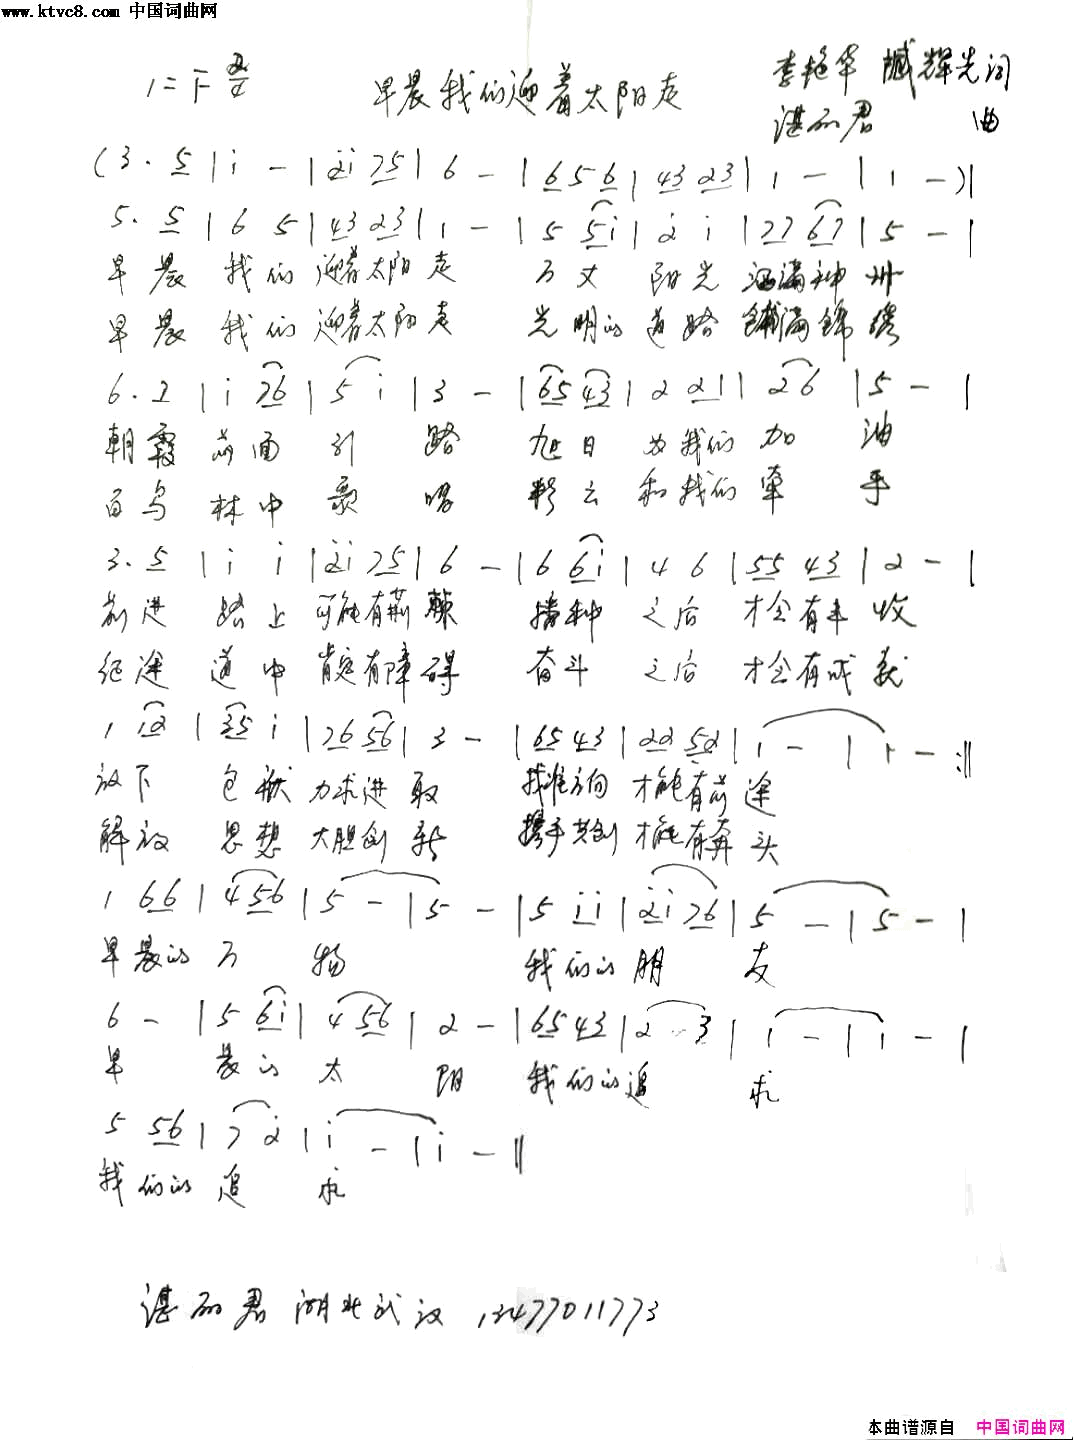 www.ktvc8.com 中国词曲网
1=F 2/4
早晨我们迎着太阳走
李艳华 臧辉光词
湛丽君 曲
(3. 5 | i - | 2i 75 | 6 - | 656 | 43 23 | 1 - | 1 -)|
5. 5 | 6 5 | 43 23 | 1 - | 5 5i | 2 i | 77 67 | 5 - |
早晨 我们 迎着太阳走 万丈 阳光 洒满神州
早晨 我们 迎着太阳走 光明的道路 铺满锦绣
6. 2 | i 76 | 5 i | 3 - | 65 43 | 2 21 | 26 | 5 - |
朝霞 前面 引路 旭日 为我们 加油
百鸟 林中 歌唱 彩云 和我们 牵手
3. 5 | i i | 2i 75 | 6 - | 6 6i | 4 6 | 55 43 | 2 - |
前进 路上 可能有荆棘 播种 之后 才会有丰收
征途 道中 肯定有障碍 奋斗 之后 才会有成就
1 12 | 35 i | 76 56 | 3 - | 65 43 | 22 52 | 1 - | 1 - :||
放下 包袱 力求进取 找准方向 才能有前途
解放 思想 大胆创新 携手共创 才能有奔头
1 66 | 4 56 | 5 - | 5 - | 5 ii | 2i 76 | 5 - | 5 - |
早晨的 万物 我们的 朋友
6 - | 5 6i | 4 56 | 2 - | 65 43 | 2 - 3 | i - | i - |
早晨的 太阳 我们的追求
5 56 | 7 2 | i - | i - ||
我们的 追求
湛丽君 湖北武汉 13477011773
本曲谱源自 中国词曲网